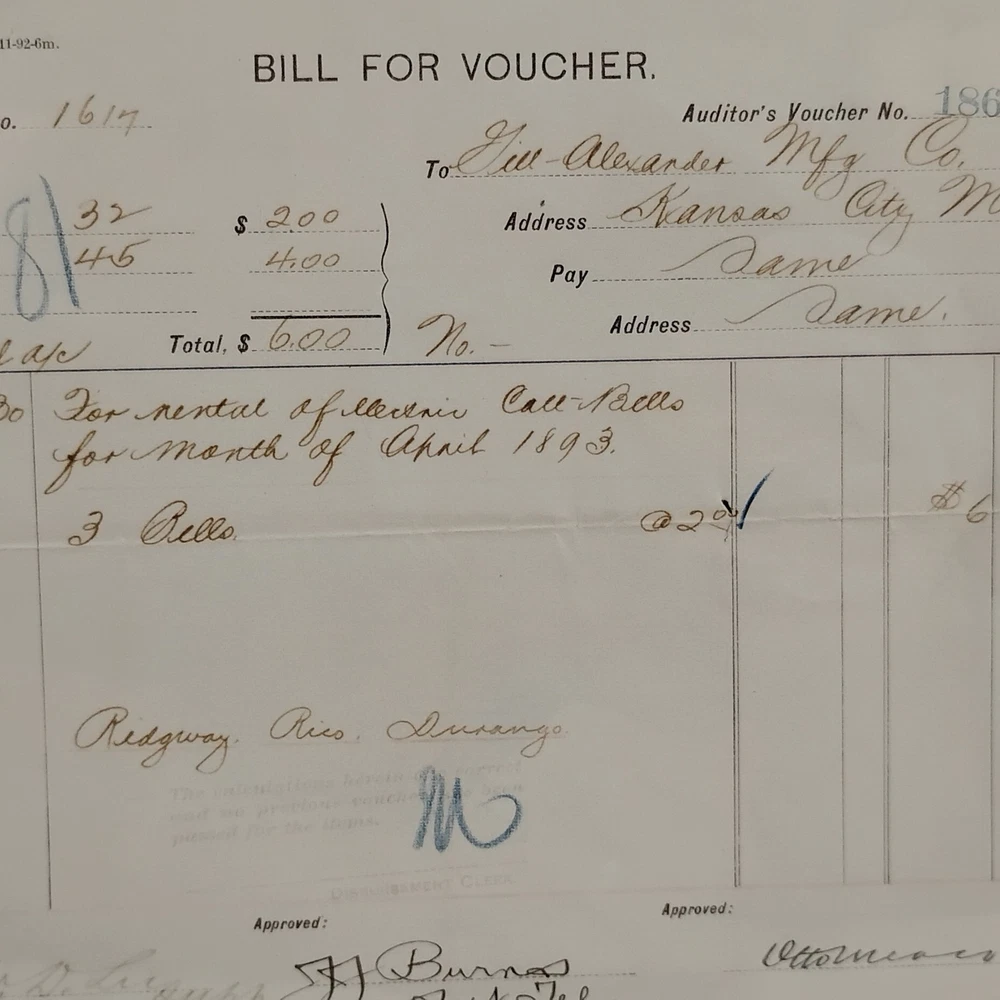 11-92-6m.
BILL FOR VOUCHER.
o. 1617
Auditor's Voucher No. 186
To Gill-Alexander Mfg Co.
32 $ 2.00
Address Kansas City M
8 45 4.00
Pay Same
Address Same.
a/c Total, $ 6.00 No. -
30 For rental of Electric Call-Bells
for month of April 1893.
3 Bells. @ 2.00 $ 6
Ridgway. Rico. Durango.
The calculations herein are correct
and no previous voucher has been
passed for the items.
M
DISBURSEMENT CLERK
Approved:
Approved:
Burns
Otto Mears
Tel